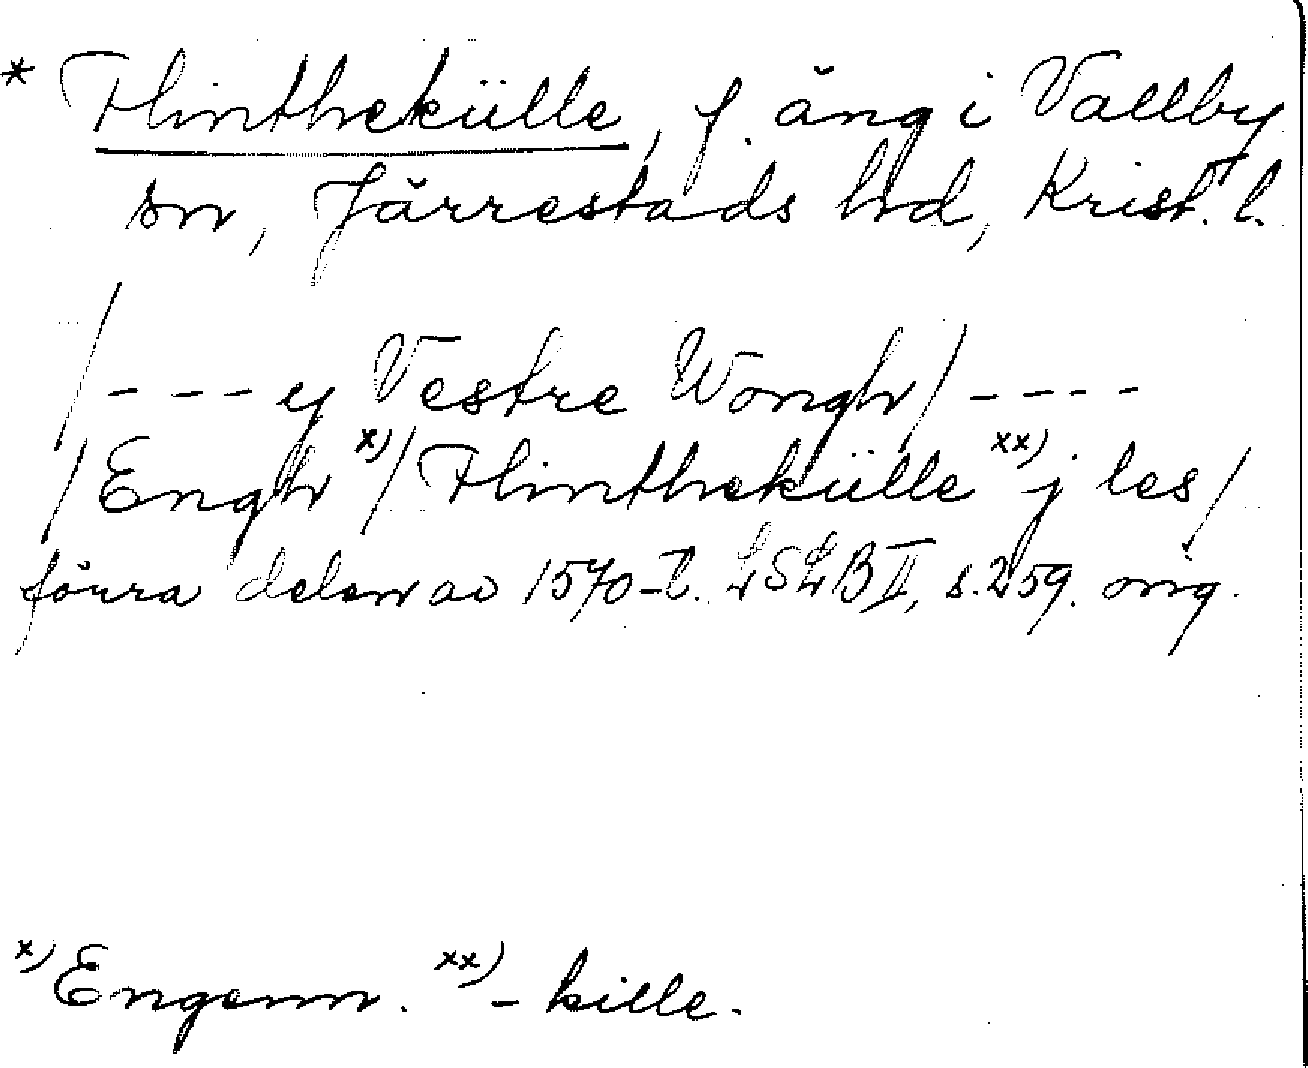 * Flinthekülle, f. äng i Vallby
sn, Järrestads hd, Krist. l.
/ - - - ey Vestre Wongh / - - - -
/ Engh x) / Flinthekülle xx) j les /
förra delen av 1570-t. LSLB II, s. 259. orig.
x) Engenn. xx) - kille.